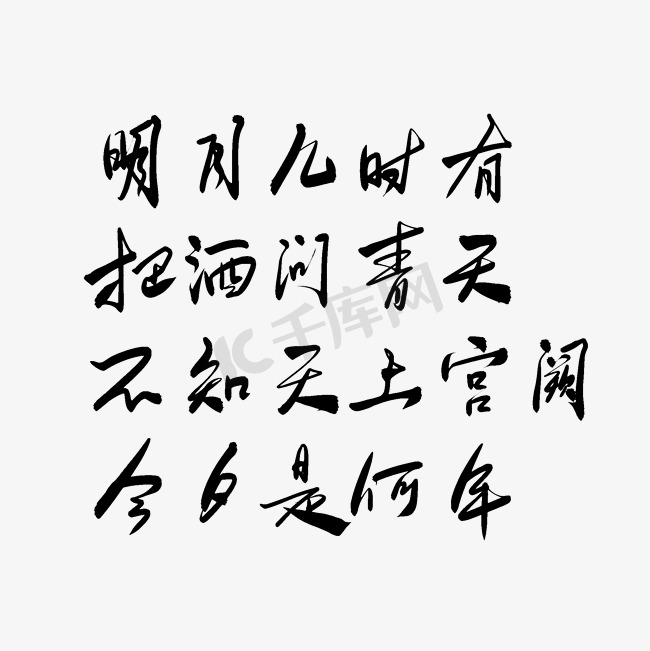 明月几时有
把酒问青天
不知天上宫阙
今夕是何年
千库网